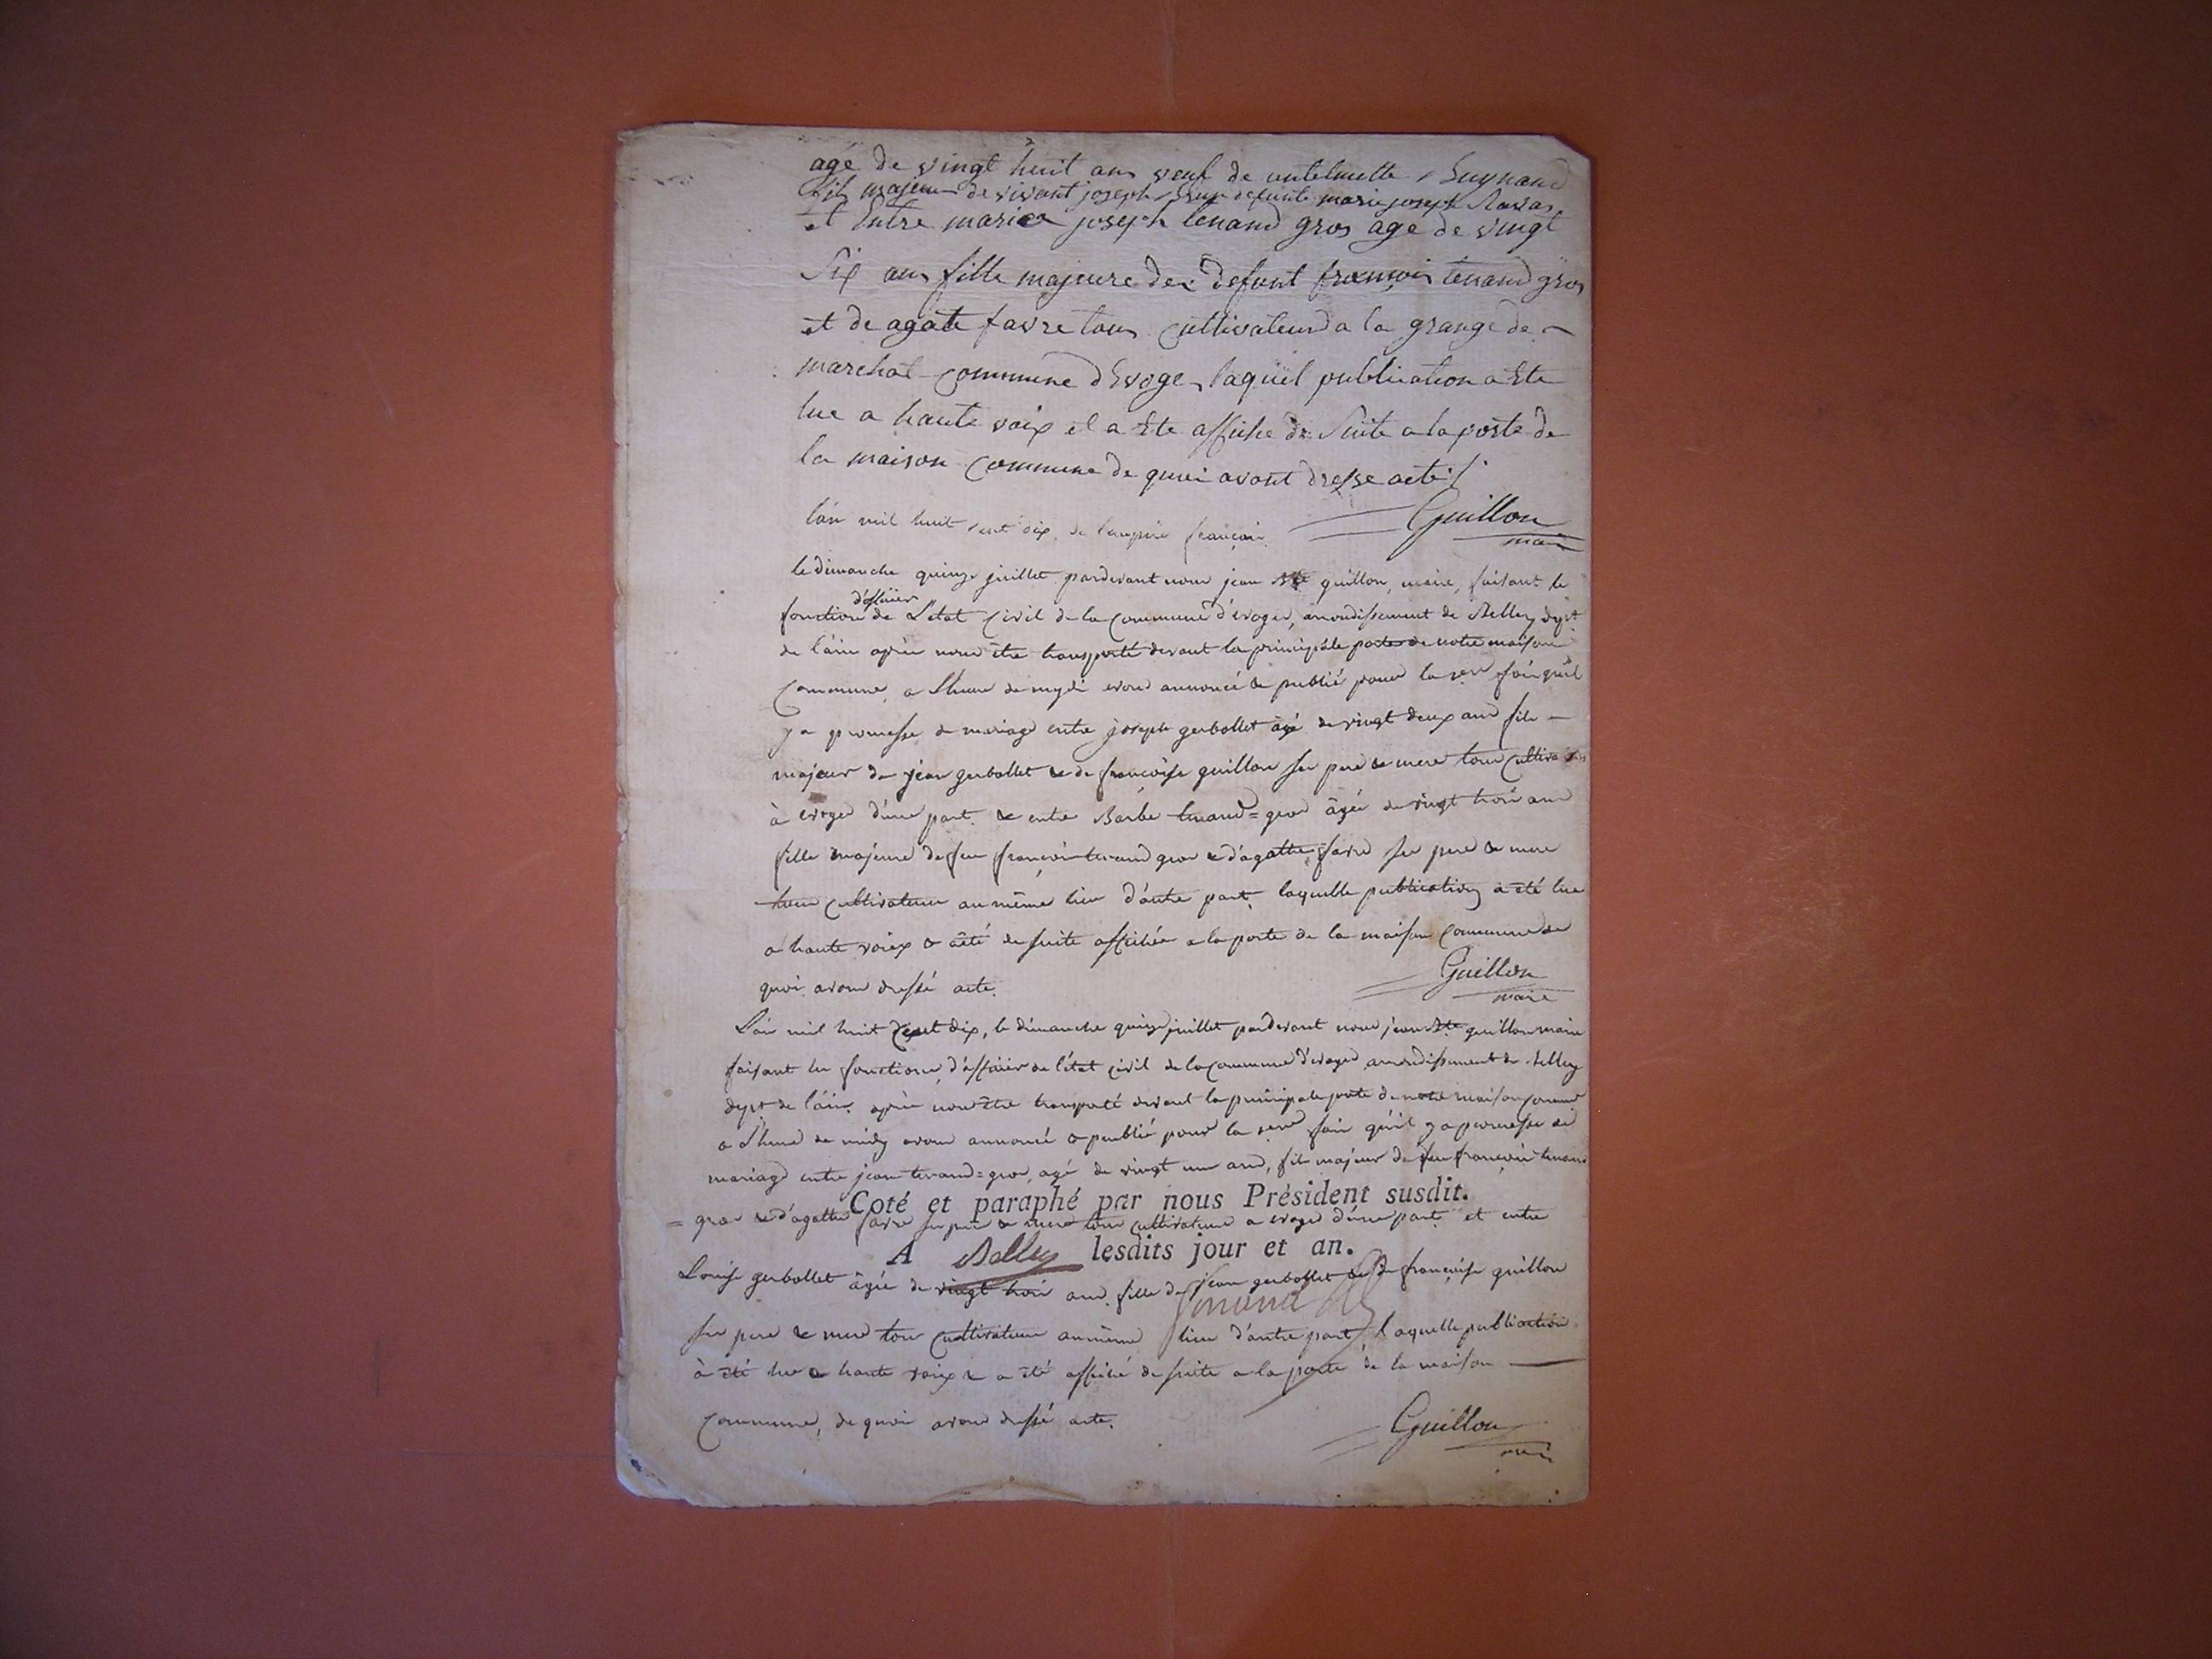 agé de vingt huit ans veuf de antelmette
fils majeur de vivant joseph defunte marie joseph
et Entre marie joseph tenand gros age de vingt
Six ans fille majeure de defunt francois tenand gros
et de agate favre tous cultivateurs a la grange de
marchat commune d'Evoge laquel publication a Ete
lue a haute voix et a Ete affiche de Suite a la porte de
la maison commune de quoi avont dresse acte
Guillon
maire
l'an mil huit cent dix, de l'empire français
le dimanche quinze juillet pardevant nous jean Bte guillon, maire, faisant le
d'officier
fonction de L'état civil de la commune d'évoges, arrondissement de Belley dept
de l'ain après nous être transporté devant la principale porte de notre maison
commune, a l'heure de mydi avons annoncé & publié pour la fois qu'il
y a promesse de mariage entre joseph gerbollet âgé de vingt deux ans fils
majeur de jean gerbollet & de françoise guillon ses pere & mere tous cultivateurs
à evoges d'une part. & entre Barbe tenand=gros âgée de vingt trois ans
fille majeure de feu françois tenand gros & d'agathe favre ses pere & mere
tous cultivateurs au même lieu d'autre part, laquelle publication a été lue
a haute voix & a été de suite affichée a la porte de la maison commune de
quoi avons dressé acte.
Guillon
maire
L'an mil huit cent dix, le dimanche quinze juillet pardevant nous jean Bte guillon maire
faisant les fonctions, d'officier de l'état civil de la commune d'évoges arrondissement de belley
dept de l'ain. après nous être transporté devant la principale porte de notre maison commune
a l'heure de midy avons annoncé & publié pour la fois qu'il y a promesse de
mariage entre jean tenand=gros, agé de vingt un ans, fils majeur de feu françois tenand
Coté et paraphé par nous Président susdit.
= gros & d'agathe favre ses pere & mere tous cultivateurs a evoges d'une part et entre
A Belley lesdits jour et an.
Louise gerbollet âgée de vingt trois ans. fille de jean gerbollet & de françoise guillon
ses pere & mere tous cultivateurs au même lieu d'autre part, laquelle publication
à été lue a haute voix & a été affiché de suite a la porte de la maison
commune, de quoi avons dressé acte.
Guillon
maire